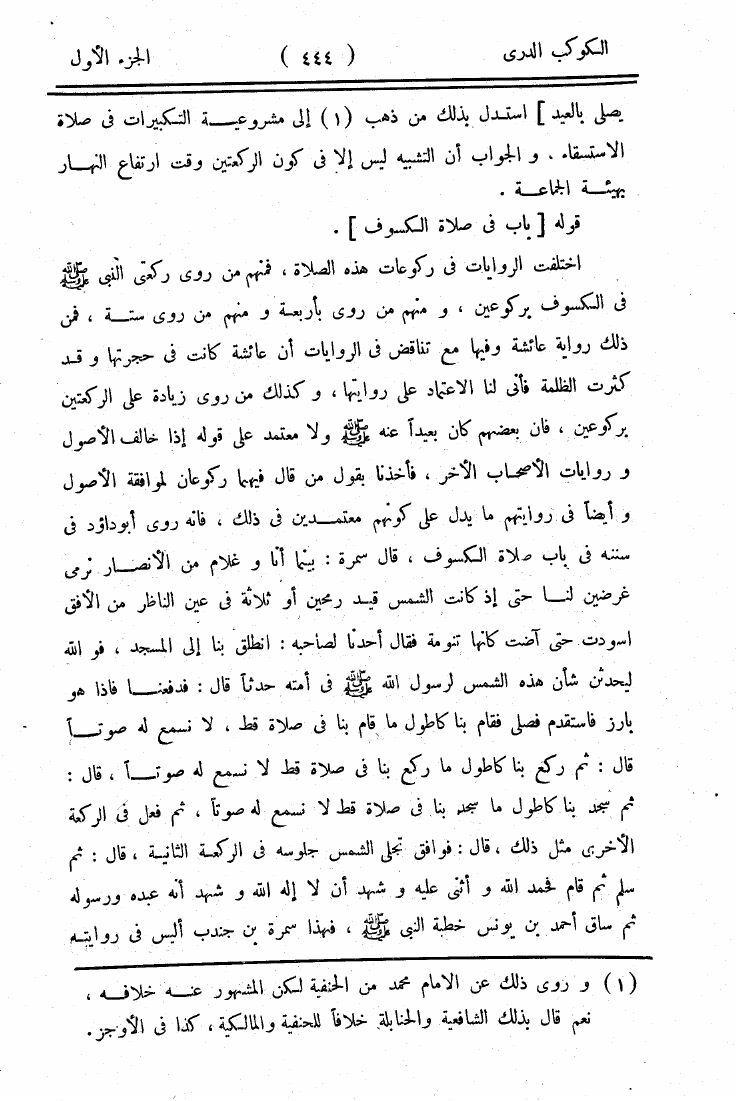 الكوكب الدرى ( ٤٤٤ ) الجزء الأول
يصلى بالعيد ] استدل بذلك من ذهب (١) إلى مشروعية التكبيرات فى صلاة
الاستسقاء . و الجواب أن التشبيه ليس إلا فى كون الركعتين وقت ارتفاع النهار
بهيئة الجماعة .
قوله [ باب فى صلاة الكسوف ] .
اختلفت الروايات فى ركوعات هذه الصلاة ، فمنهم من روى ركعتى النبى ﷺ
فى الكسوف بركوعين ، و منهم من روى بأربعة و منهم من روى ستة ، فمن
ذلك رواية عائشة وفيها مع تناقض فى الروايات أن عائشة كانت فى حجرتها و قد
كثرت الظلمة فأنى لنا الاعتماد على روايتها ، و كذلك من روى زيادة على الركعتين
بركوعين ، فان بعضهم كان بعيداً عنه ﷺ ولا معتمد على قوله إذا خالف الأصول
و روايات الأصحاب الأخر ، فأخذنا بقول من قال فيهما ركوعان لموافقة الأصول
و أيضاً فى روايتهم ما يدل على كونهم معتمدين فى ذلك ، فانه روى أبوداؤد فى
سننه فى باب صلاة الكسوف ، قال سمرة : بينما أنا و غلام من الأنصار نرمى
غرضين لنا حتى إذ كانت الشمس قيد رمحين أو ثلاثة فى عين الناظر من الأفق
اسودت حتى آضت كانها تنومة فقال أحدنا لصاحبه : انطلق بنا إلى المسجد ، فو الله
ليحدثن شأن هذه الشمس لرسول الله ﷺ فى أمته حدثاً قال : فدفعنا فاذا هو
بارز فاستقدم فصلى فقام بنا كاطول ما قام بنا فى صلاة قط ، لا نسمع له صوتاً
قال : ثم ركع بنا كاطول ما ركع بنا فى صلاة قط لا نسمع له صوتاً ، قال :
ثم سجد بنا كاطول ما سجد بنا فى صلاة قط لا نسمع له صوتاً ، ثم فعل فى الركعة
الأخرى مثل ذلك ، قال : فوافق تجلى الشمس جلوسه فى الركعة الثانية ، قال : ثم
سلم ثم قام فحمد الله و أثنى عليه و شهد أن لا إله الله و شهد أنه عبده ورسوله
ثم ساق أحمد بن يونس خطبة النبى ﷺ ، فهذا سمرة بن جندب أليس فى روايته
(١) و روى ذلك عن الامام محمد من الحنفية لكن المشهور عنه خلافه ،
نعم قال بذلك الشافعية والحنابلة خلافاً للحنفية والمالكية ، كذا فى الأوجز .